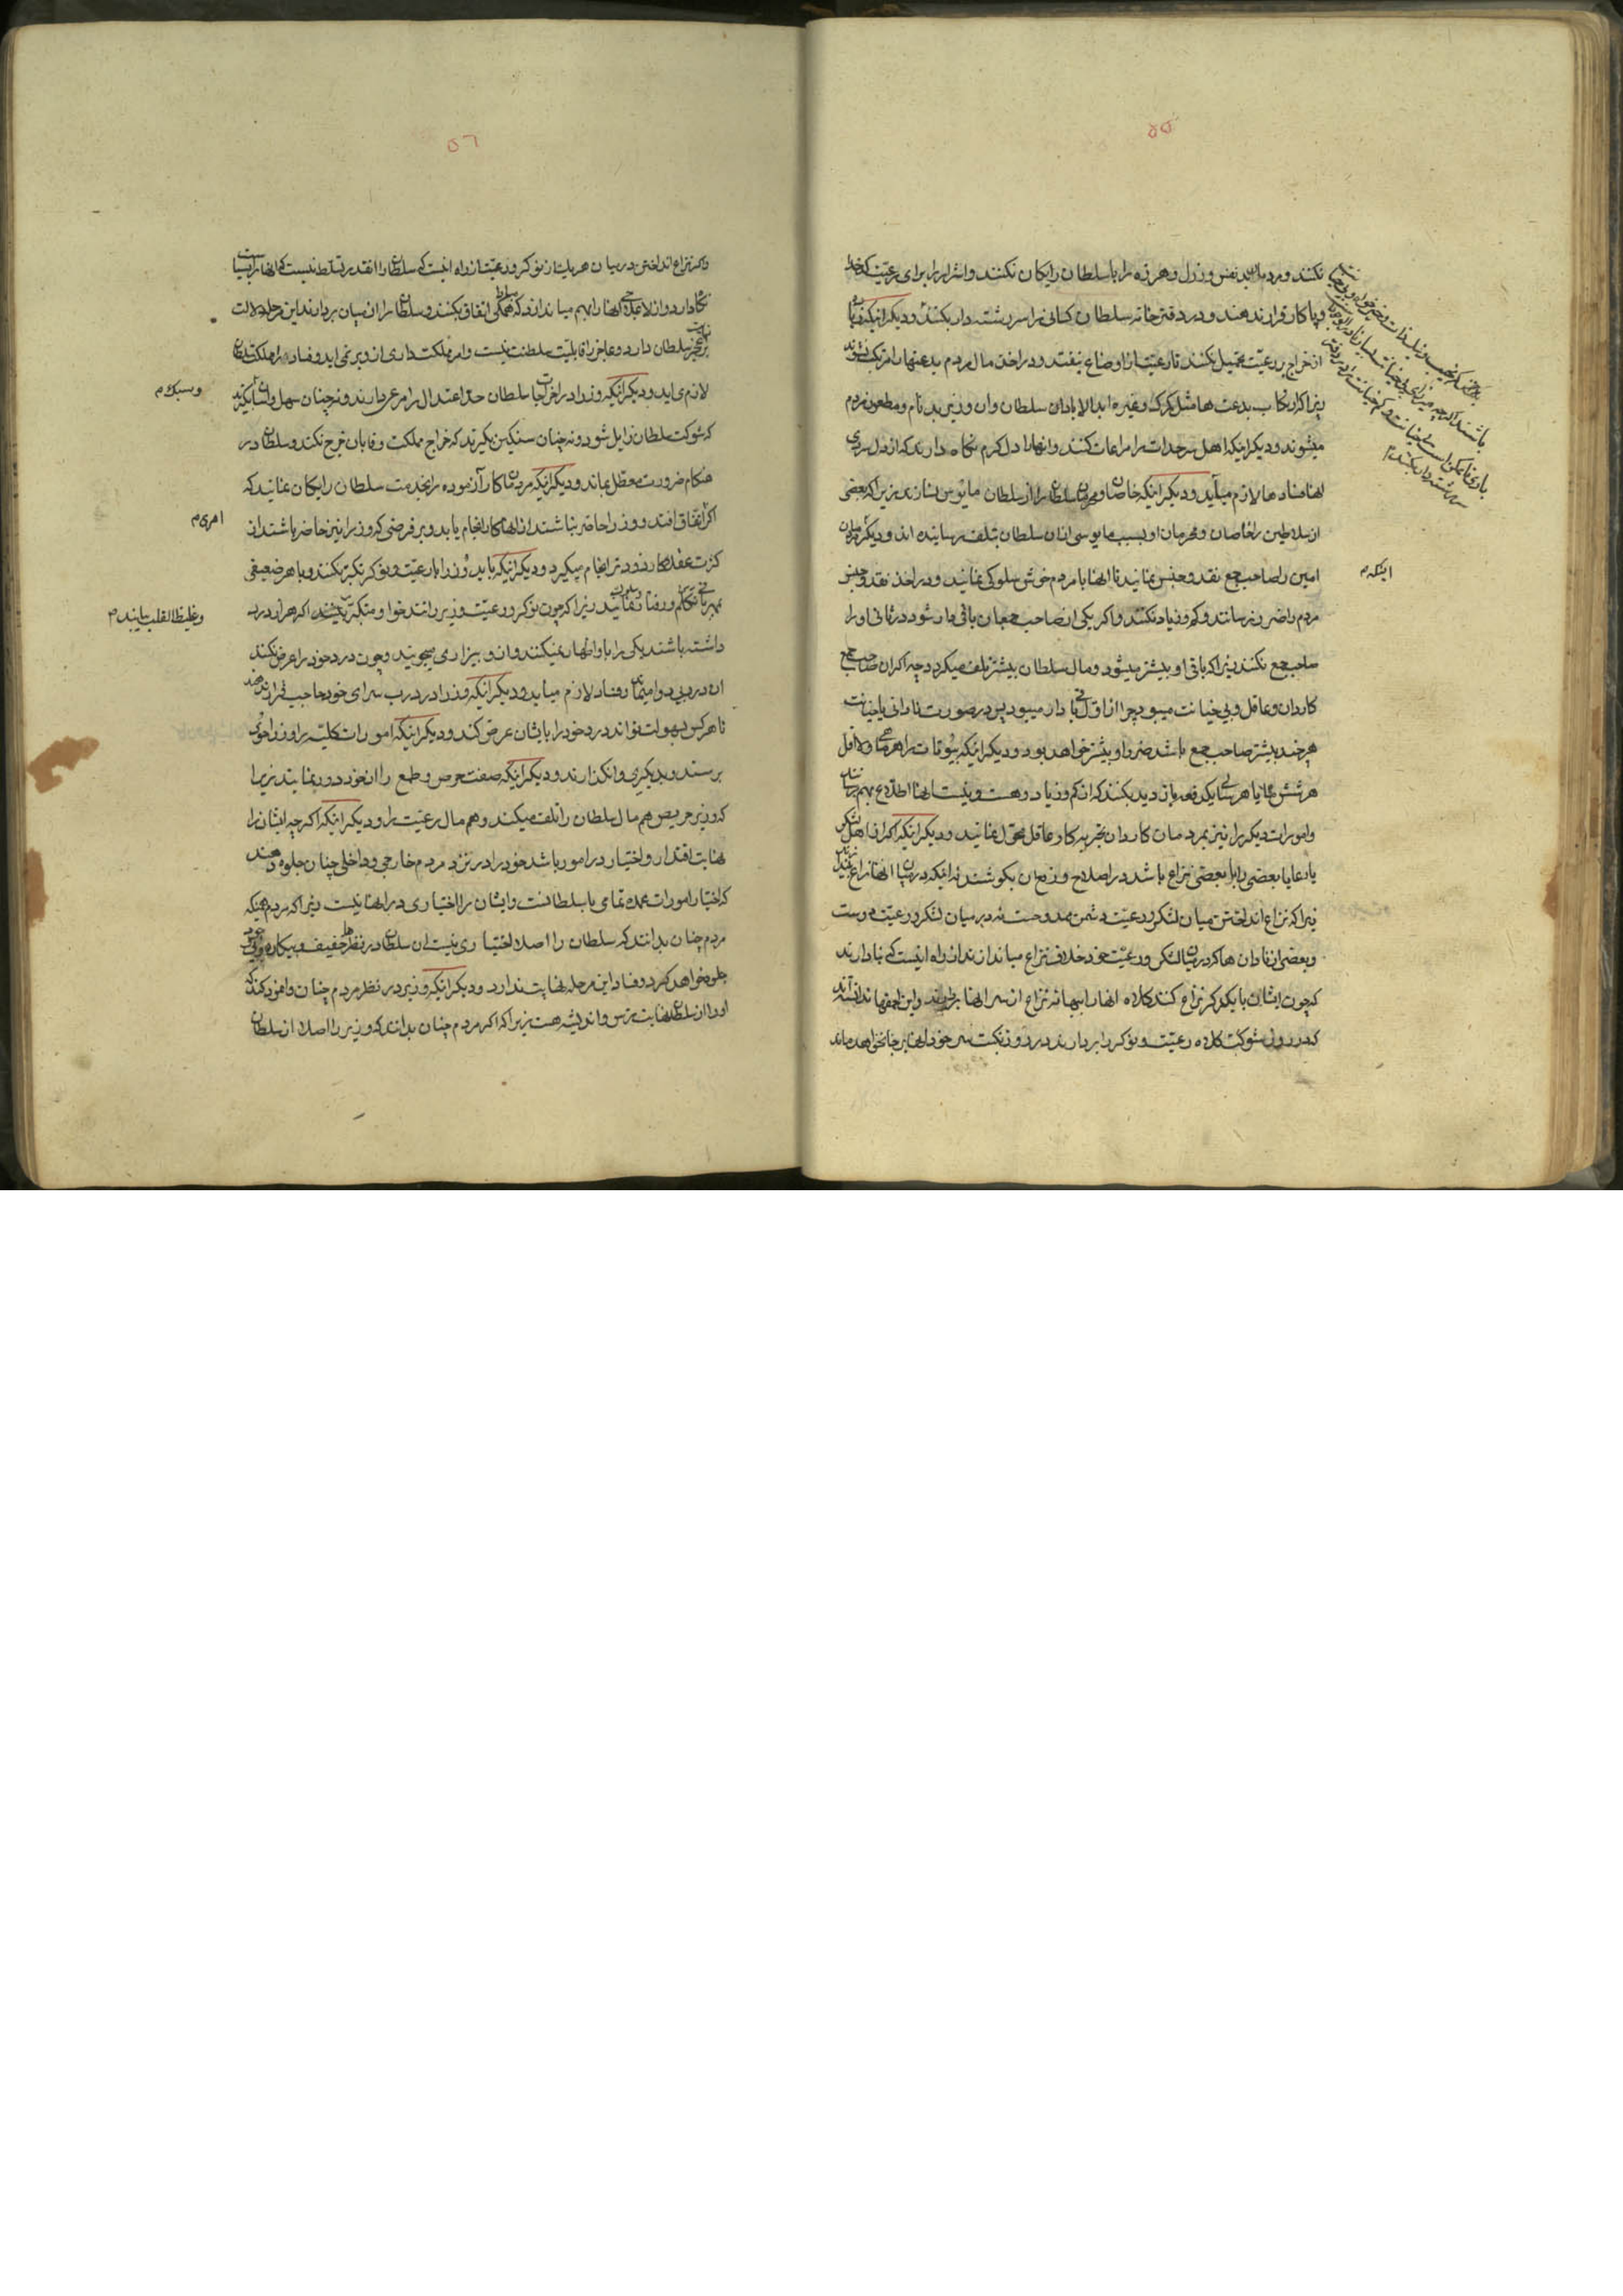 ۵۵
نکنند و مردم بد نفس و رذل و هرزه را با سلطان رایکان نکنند و اشرار را برای رعیت کدخدا
و پاکار قرار ندهند و در دفترخانه سلطان کسانی را سررشته دار بکنند و دیگر اینکه زیاده
از خراج بر رعیت تحمیل نکنند تا رعیت از اوضاع نیفتد و در اخذ مال مردم بدعتها را مرتکب نشوند
زیرا که ارتکاب بدعت ها مثل کمرک و غیره ابد الاباد ان سلطان و ان وزیر بد نام و مطعون مردم
میشوند و دیگر اینکه اهل سرحدات را مراعات کنند و انها را دل کرم نکاه دارند که از دل سردی
انها فسادها لازم میآید و دیگر اینکه خاصان و محرمان سلطان را از سلطان مایوس نسازند زیرا که بعضی
از سلاطین را خاصان و محرمان او بسبب مایوسی از ان سلطان بتلف رسانیده اند و دیگر مردمان
امین را صاحب جمع نقد و جنس نمایند تا انها با مردم خوش سلوکی نمایند و در اخذ نقد و جنس
مردم را ضرر نرسانند و کم و زیاد نکنند و اگر یکی از صاحب جمعان باقی دار شود در ثانی او را
صاحب جمع نکنند زیرا که باقی او بیشتر میشود و مال سلطان بیشتر تلف میکردد چه اکر ان صاحب جمع
کاردان و عاقل و بی خیانت میبود چرا از اول باقی دار میبود پس در صورت نادانی یا خیانت
هر چند بیشتر صاحب جمع باشد ضرر او بیشتر خواهد بود و دیگر اینکه بیوتات را هر ماهی و لا اقل
هر شش ماه یا هر سالی یکدفعه بازدید بکنند که از کم و زیاد و هست و نیست انها اطلاع بهم رسانند
و امورات دیگر را نیز بمردمان کاردان تجربه کار عاقل محول نمایند و دیگر اینکه اکر از اهل لشکر
یا رعایا بعضی را با بعضی نزاع باشد در اصلاح و رفع ان بکوشند نه اینکه در میان انها نزاع بیندازند
زیرا که نزاع انداختن میان لشکر و رعیت دشمن مدوحست نه در میان لشکر و رعیت دوست
و بعضی از نادان ها که در میان لشکر و رعیت خود خلاف نزاع میاندازند از راه اینست که بنا دارند
که چون ایشان با یکدیگر نزاع کنند کلاه انها را ببهانه نزاع از سر انها بردارند و این احمقها ندانسته اند
که در روز شوکت کلاه رعیت و نوکر را بردارند در روز نکبت سر خود انها بر جا نخواهد ماند
اینکه م
سررشته دار بکنند م
۵٦
و اکر نزاع انداختن در میان هر یک از نوکر و رعیت از راه اینست که سلطان را انقدر تسلط نیست که انها را بسیاست
نکاه دارد و از لا علاجی انها را بهم میاندازد که مبادا همکی اتفاق بکنند و سلطان را از میان بردارند این مرحله دلالت
بر نهایت عجز سلطان دارد و عاجز را قابلیت سلطنت نیست و امر مملکت داری از او بر نمی اید و فساد در امر مملکت داری
لازم می اید و دیگر اینکه وزراء در اخراجات سلطان حد اعتدال را مرعی دارند و نه چنان سهل و اسان بگیرند
که شوکت سلطان زایل شود و نه چنان سنکین بگیرند که خراج مملکت وفا بان خرج نکند و سلطان در
هنکام ضرورت معطل بماند و دیگر اینکه مردمان کار آزموده را بخدمت سلطان رایکان نمایند که
اکر اتفاق افتد و وزراء حاضر نباشند از انها کار انجام یابد و بر فرضی که وزراء نیز حاضر باشند از
کثرت عقلا کار زودتر انجام میکیرد و دیگر اینکه باید وزراء با رعیت و نوکر تکبر نکنند و با هر ضعیفی
بمهربانی تکلم و رفتار نمایند زیرا که چون نوکر و رعیت وزیر را تند خو و متکبر ببینند اکر هزار درد
داشته باشند یکی را باو اظهار نمیکنند و از او بیزاری میجویند و چون درد خود را عرض نکنند
ان درد بی دوا میماند و فساد لازم میاید و دیگر اینکه وزراء در درب سرای خود حاجب قرار ندهند
تا هر کس بسهولت تواند درد خود را بایشان عرض کند و دیگر اینکه امورات کلیه را وزراء خود
برسند و بدیکری وانکذارند و دیگر اینکه صفت حرص و طمع را از خود دور نمایند زیرا
که وزیر حریص هم مال سلطان را تلف میکند و هم مال رعیت را و دیگر اینکه اکر چه ایشان را
نهایت اقتدار و اختیار در امور باشد خود را در نزد مردم خارجی و داخلی چنان جلوه دهند
که اختیار امورات عمده تمامی با سلطانست و ایشان را اختیاری در انها نیست زیرا که مردم همینکه
مردم چنان بدانند که سلطان را اصلا اختیاری نیست ان سلطان در نظرها خفیف و بیکاره
جلوه خواهد کرد و فساد این مرحله نهایت ندارد و دیگر اینکه وزیر در نظر مردم چنان وانمود کند که
او را از سلطان نهایت ترس و اندیشه هست زیرا که اکر مردم چنان بدانند که وزیر را اصلا از سلطان
و سبک م
امری م
و غلیظ القلب یابند م